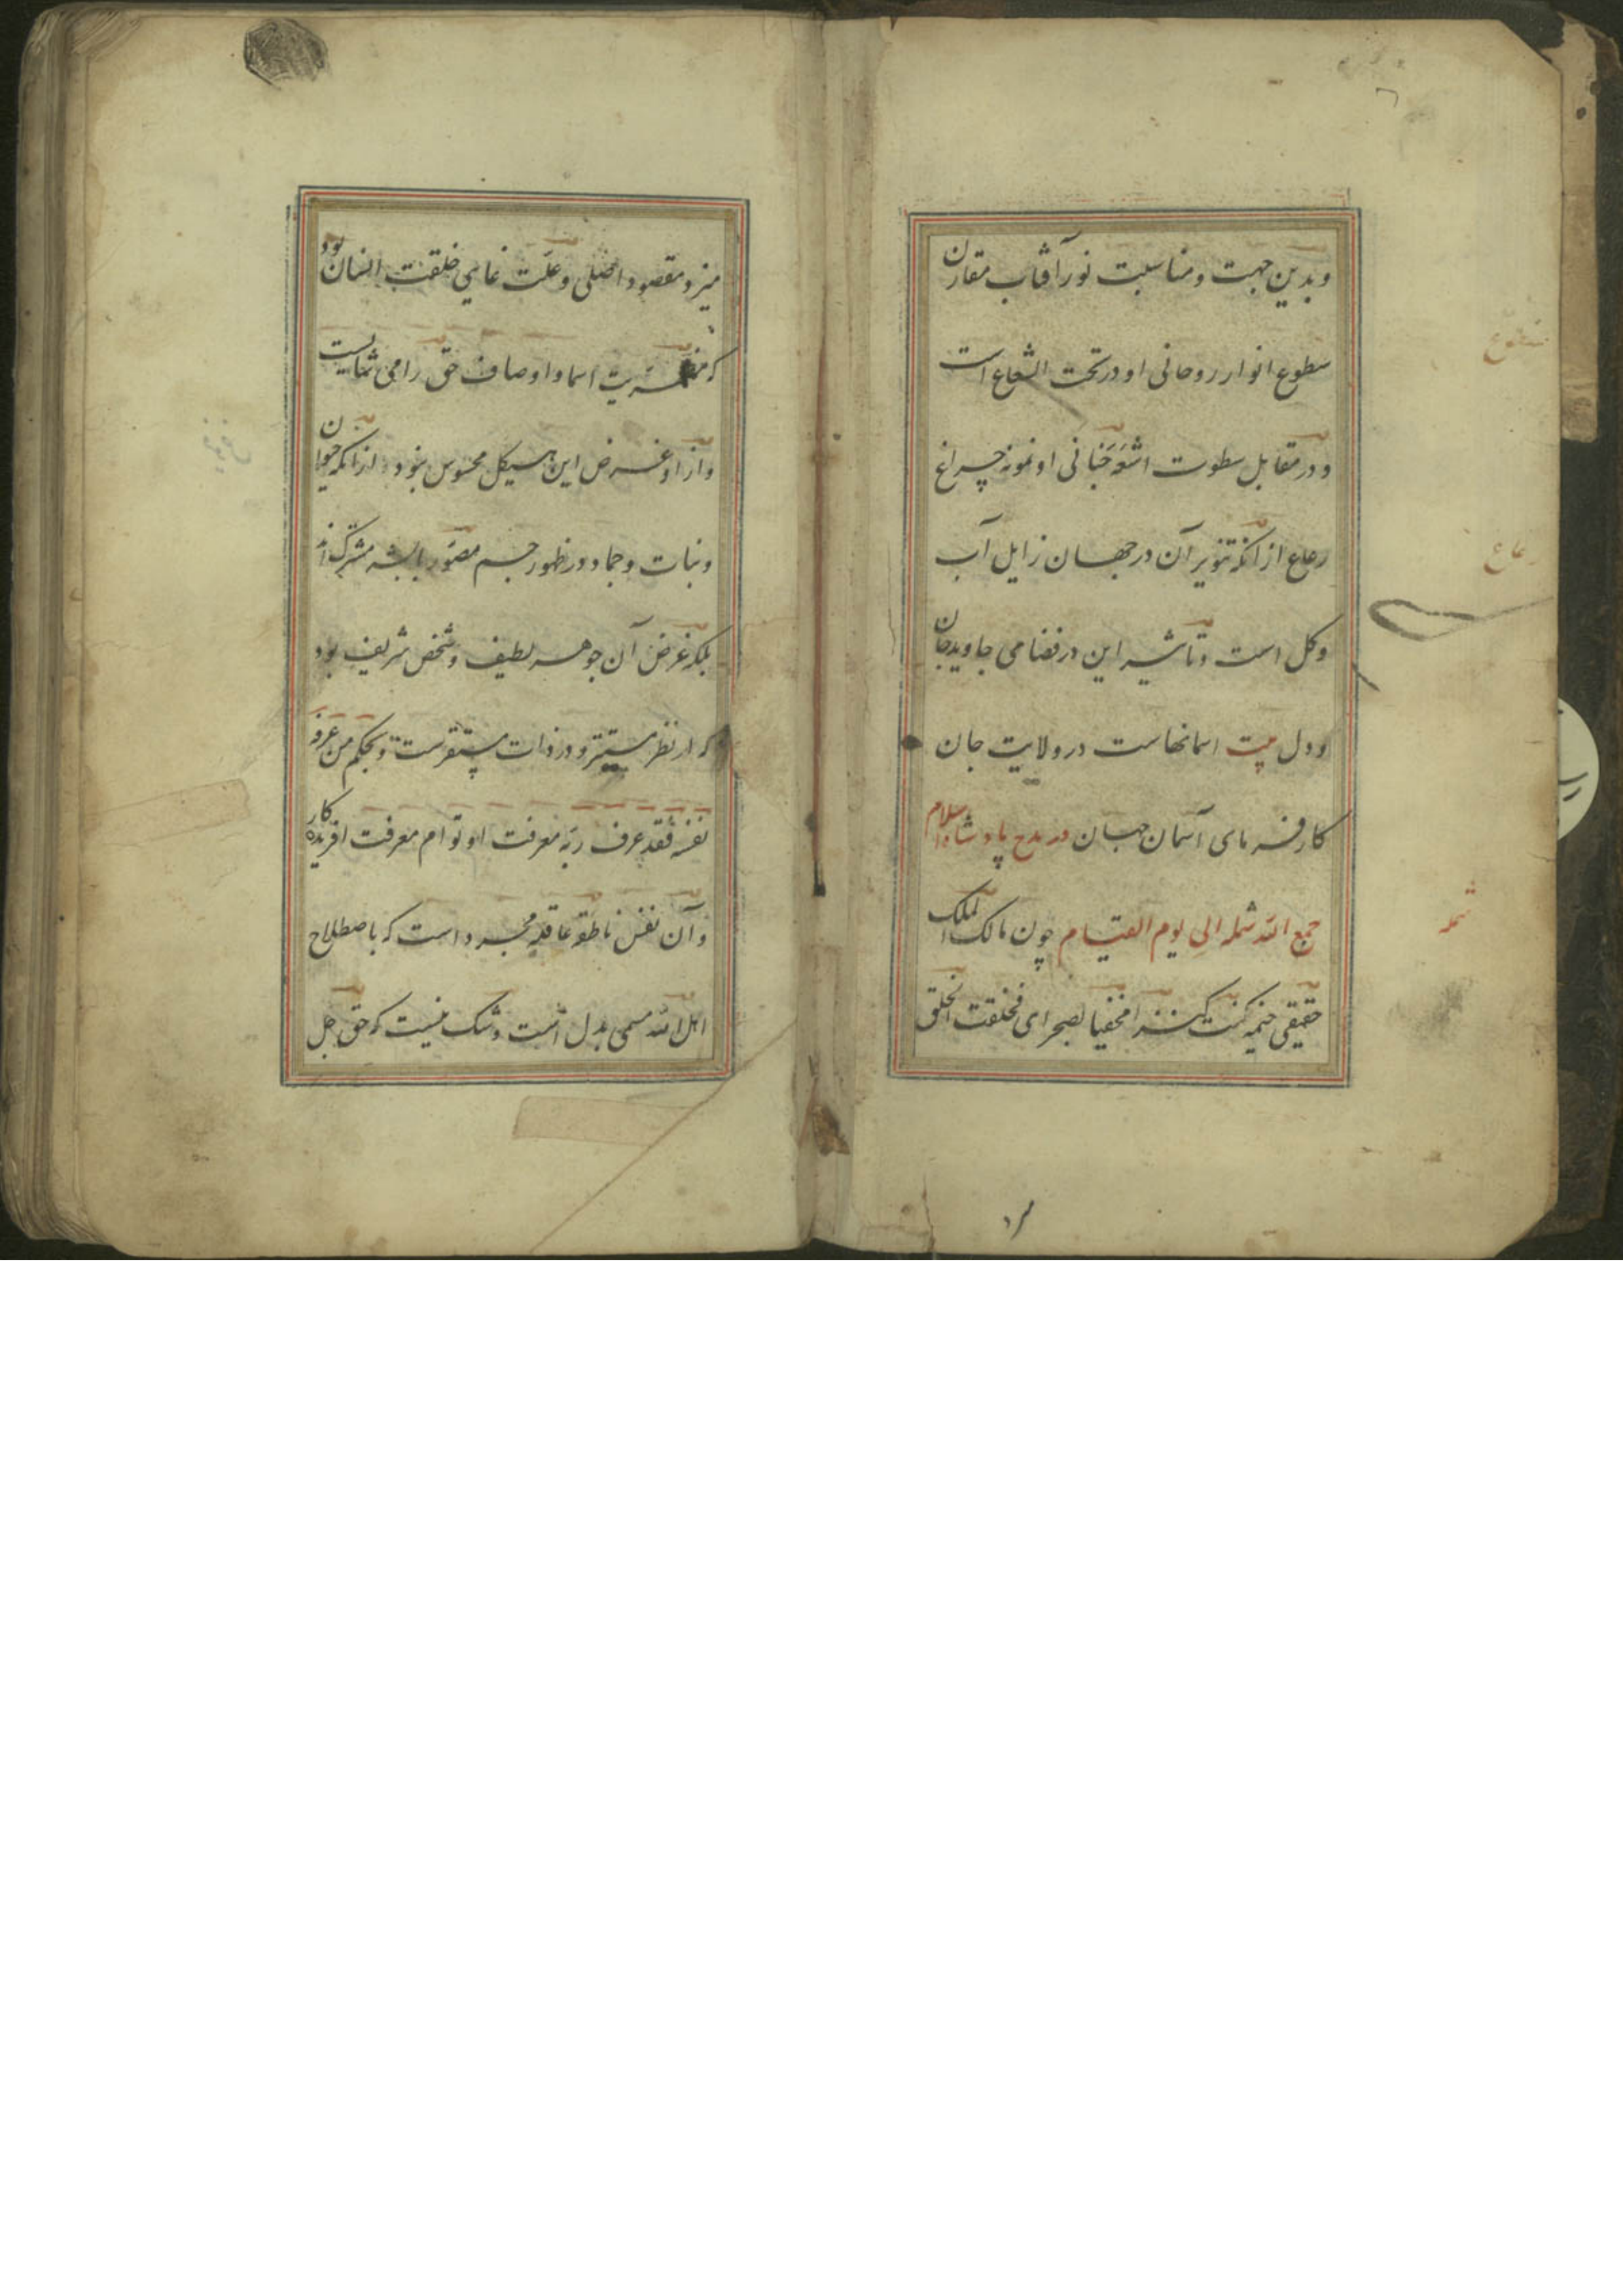 وبدین جهت ومناسبت نور آفتاب مقارن
سطوع انوار روحانی او در تحت الشعاع است
و در مقابل سطوت اشعه جنانی او نمونه چراغ
رعاع از آنکه تنویر آن در جهان زایل آب
وکل است وتاثیر این در فضای جاوید جان
ودل بیت اسمانهاست در ولایت جان
کارفرمای آسمان جهان در مدح پادشاه اسلام
جمع الله شمله الی یوم القیام چون مالک الملک
حقیقی خیمه کنت کنزا مخفیا بصحرای فخلقت الخلق
میزد ومقصود اصلی وعلت غایی خلقت انسان بود
که مظهریت اسما واوصاف حق را می شایست
واز او غرض این هیکل محسوس نبود از آنکه حیوان
ونبات وجماد در ظهور جسم مصور با بشر مشترک اند
بلکه غرض آن جوهر لطیف وشخص شریف بود
که از نظر مستتر و در ذات مستقرست وبحکم من عرف
نفسه فقد عرف ربه معرفت او توام معرفت افریده کار
وآن نفس ناطقه عاقله مجرد است که باصطلاح
اهل الله مسمی بدل است وشک نیست که حق جل
سطوع
رعاع
شمله